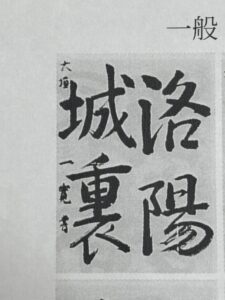 一般
洛陽
城裏
大垣 一寛書